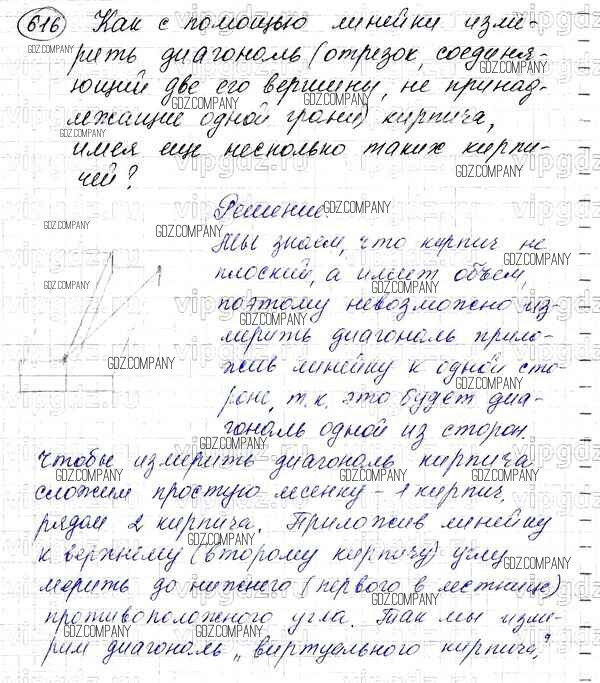 616 Как с помощью линейки изме-
рить диагональ (отрезок, соединя-
ющий две его вершины, не принад-
лежащие одной грани) кирпича,
имея еще несколько таких кирпи-
чей?
Решение
Мы знаем, что кирпич не
плоский, а имеет объем,
поэтому невозможно из-
мерить диагональ прило-
жив линейку к одной сто-
роне, т.к. это будет диа-
гональ одной из сторон.
Чтобы измерить диагональ кирпича
сложим простую лесенку - 1 кирпич,
рядом 2 кирпича. Приложив линейку
к верхнему (второму кирпичу) углу
мерить до нижнего (первого в лестнице)
противоположного угла. Так мы изме-
рим диагональ „виртуального кирпича"